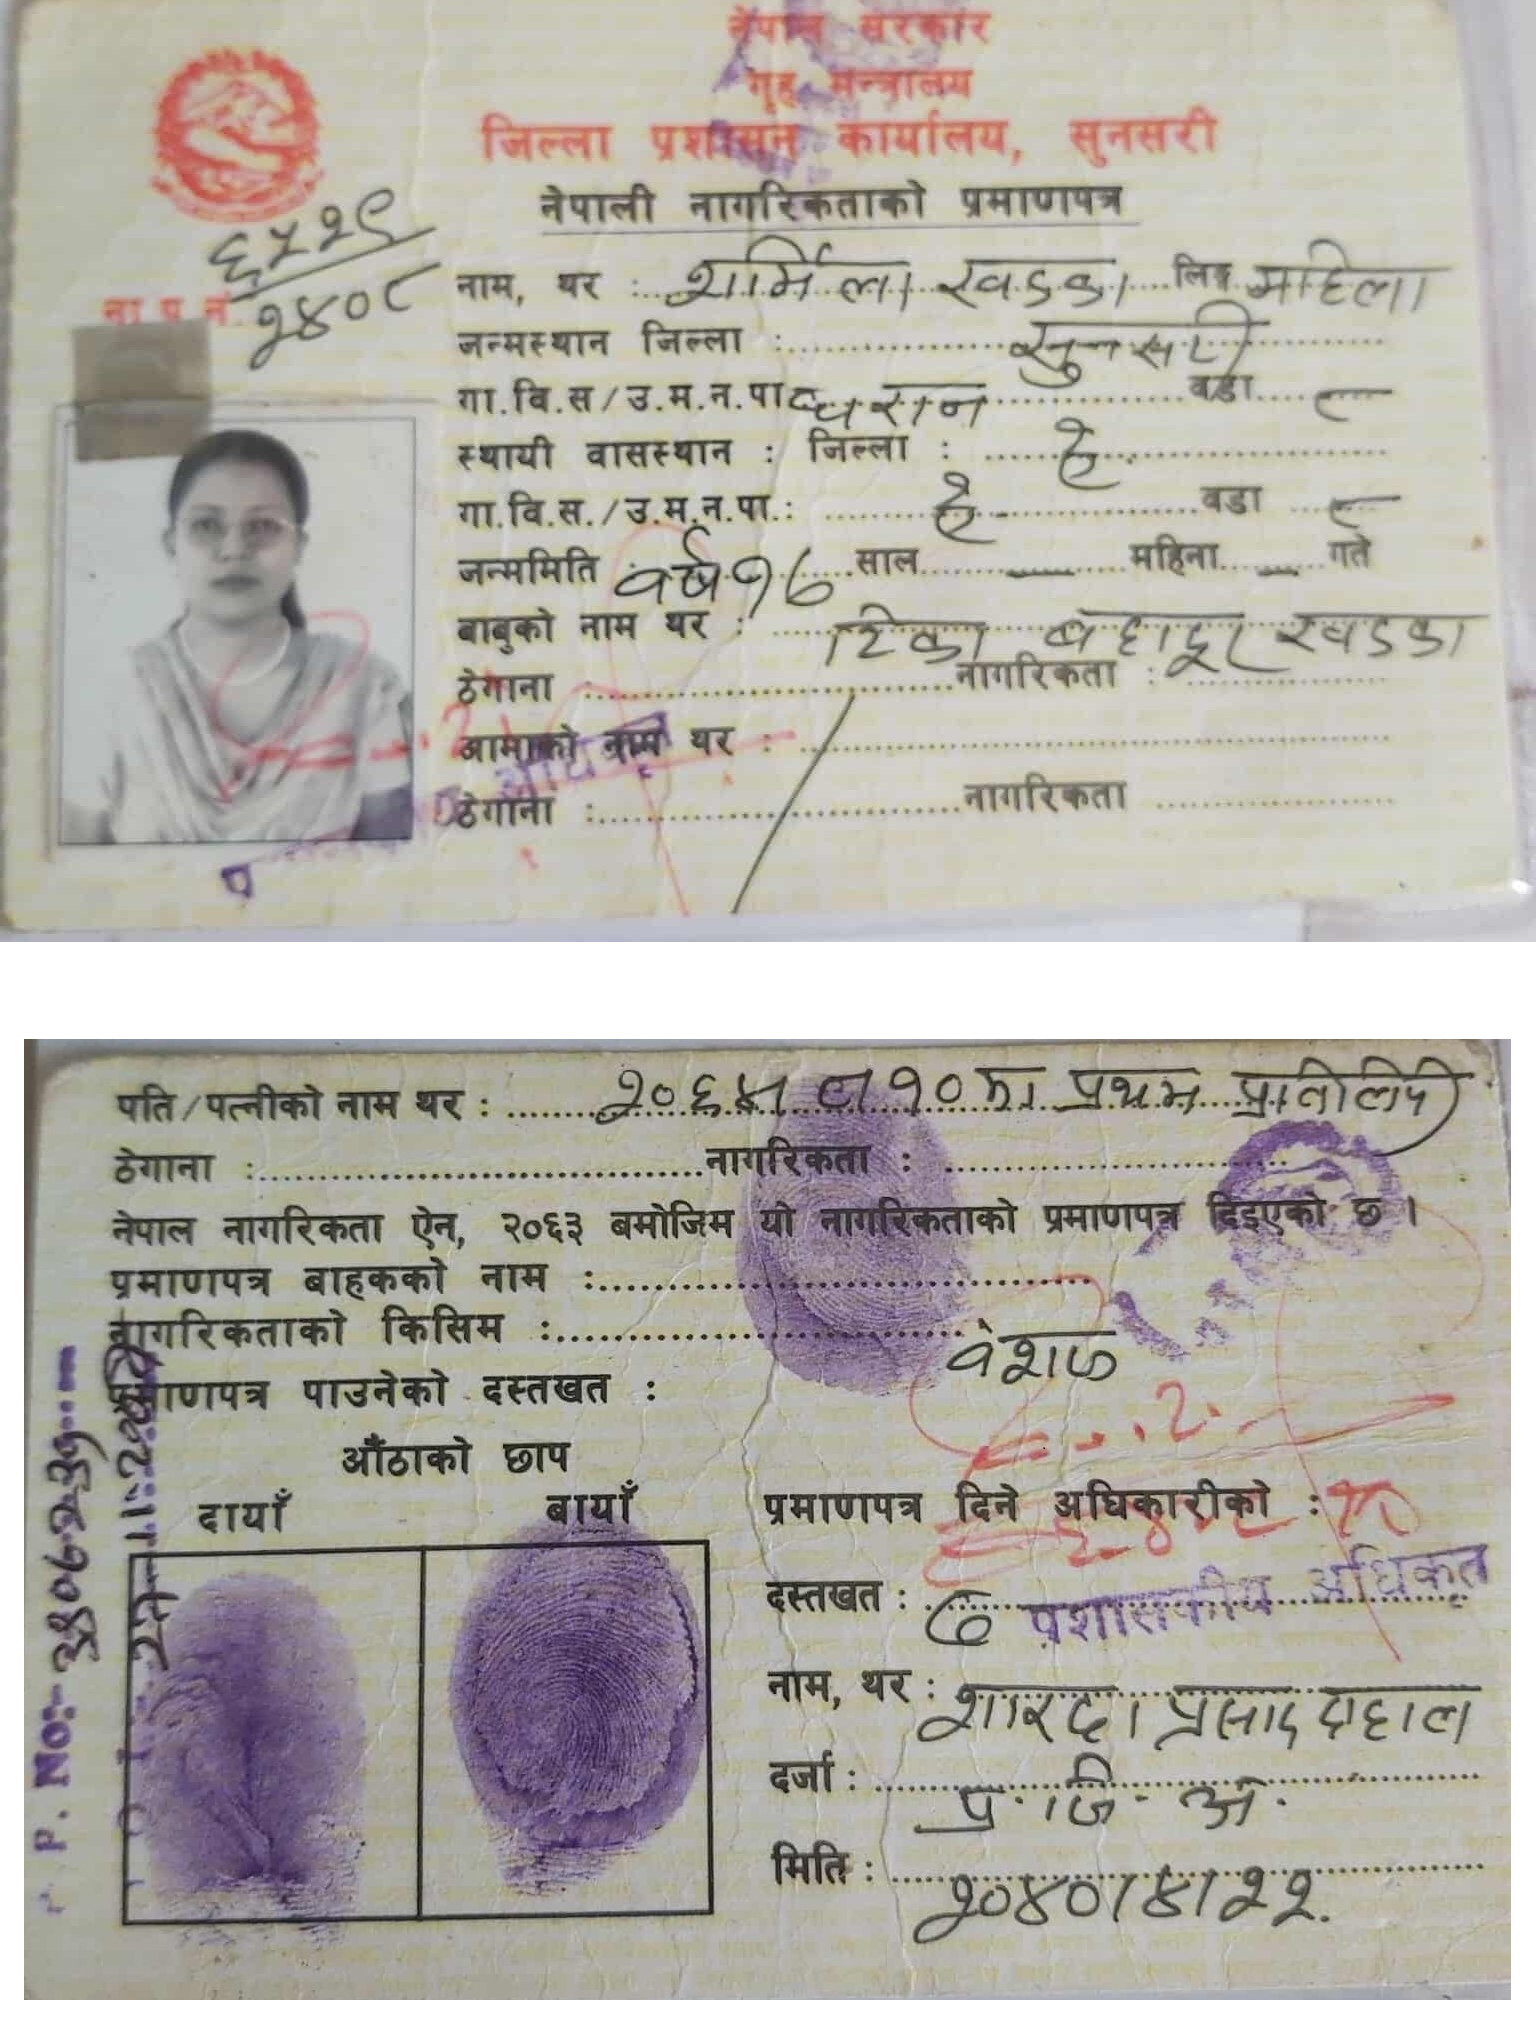 नेपाल सरकार
गृह मन्त्रालय
जिल्ला प्रशासन कार्यालय, सुनसरी
नेपाली नागरिकताको प्रमाणपत्र
ना.प्र.नं.
नाम, थर : शर्मिला खडका लिङ्ग महिला
जन्मस्थान जिल्ला : सुनसरी
गा.वि.स/उ.म.न.पा. धरान वडा ८
स्थायी वासस्थान : जिल्ला : ऐ.
गा.वि.स./उ.म.न.पा.: ऐ. वडा ८
जन्ममिति वर्ष १६ साल — महिना — गते
बाबुको नाम थर : टिका बहादुर खडका
ठेगाना : नागरिकता :
आमाको नाम थर :
ठेगाना : नागरिकता
पति/पत्नीको नाम थर : प्रथम प्रतिलिपी
ठेगाना : नागरिकता :
नेपाल नागरिकता ऐन, २०६३ बमोजिम यो नागरिकताको प्रमाणपत्र दिइएको छ ।
प्रमाणपत्र बाहकको नाम :
नागरिकताको किसिम : वंशज
प्रमाणपत्र पाउनेको दस्तखत :
औंठाको छाप
दायाँ बायाँ
प्रमाणपत्र दिने अधिकारीको :
दस्तखत : प्रशासकीय अधिकृत
नाम, थर : शारदा प्रसाद दाहाल
दर्जा : प्र. जि. अ.
मिति : २०४०।४।२२.
P. No:-